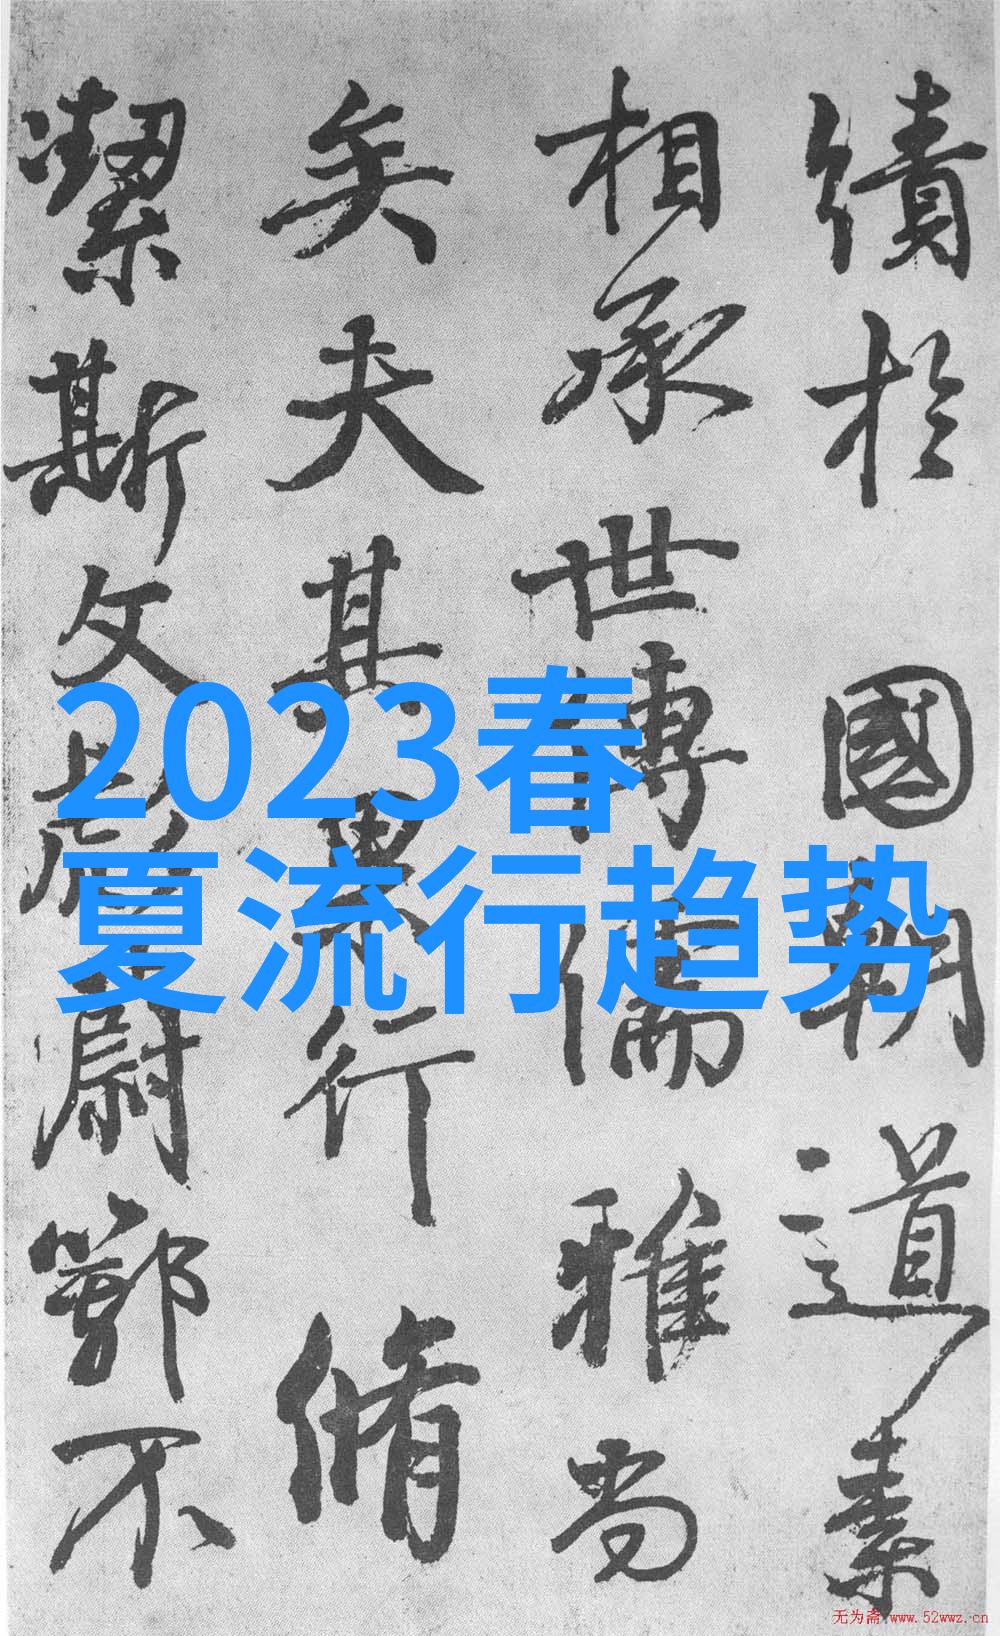 績於國朝道素
相承世傳儒雅尚
矣夫其果行脩
潔斯文彪蔚鄂不
2023春
夏流行趋势
无为斋 www.52wwz.cn